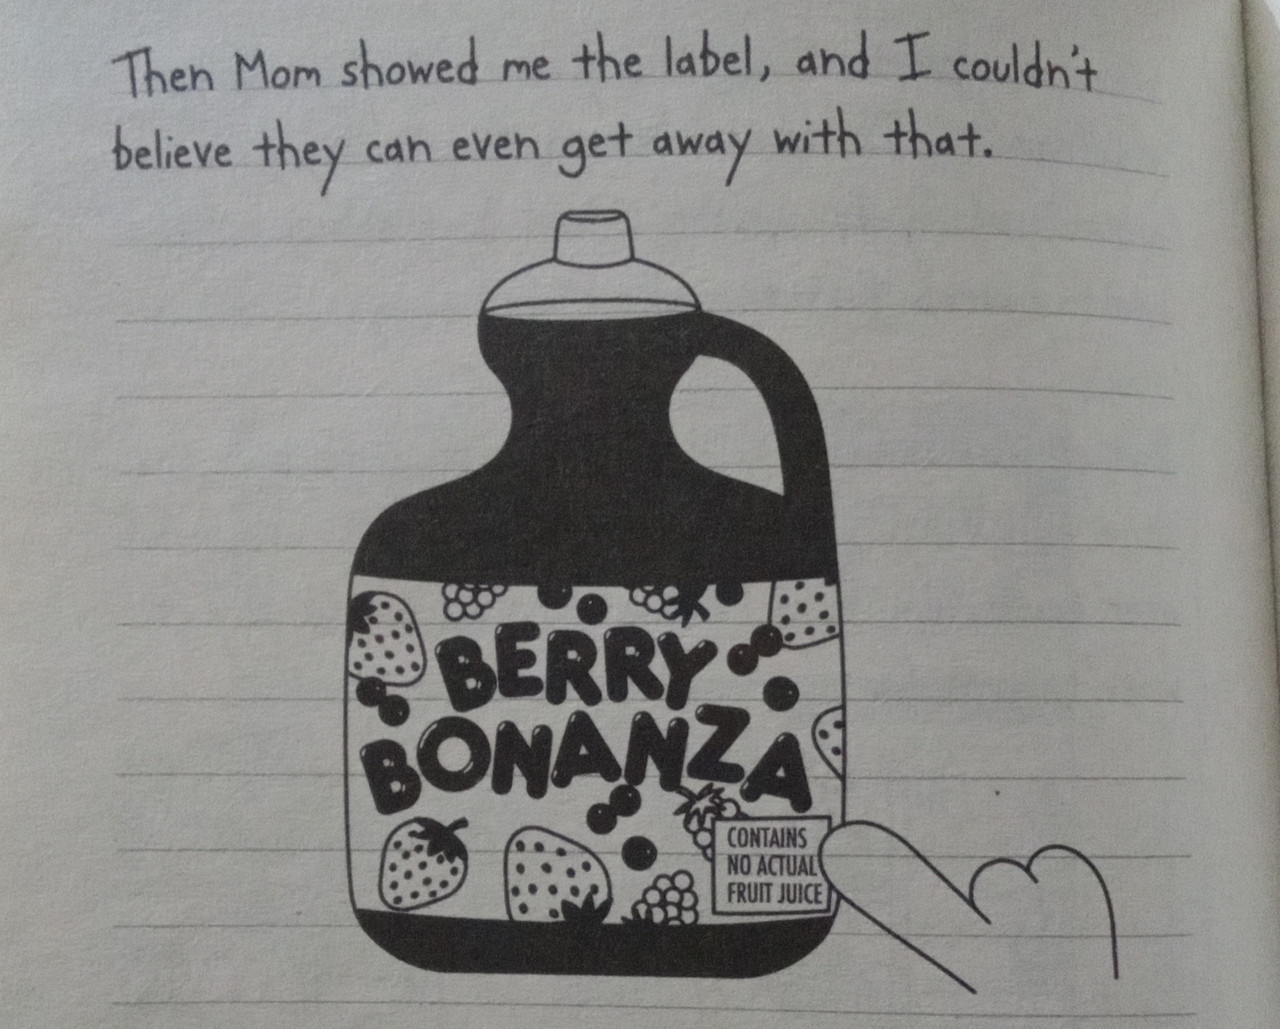 Then Mom showed me the label, and I couldn't
believe they can even get away with that.
BERRY
BONANZA
CONTAINS
NO ACTUAL
FRUIT JUICE